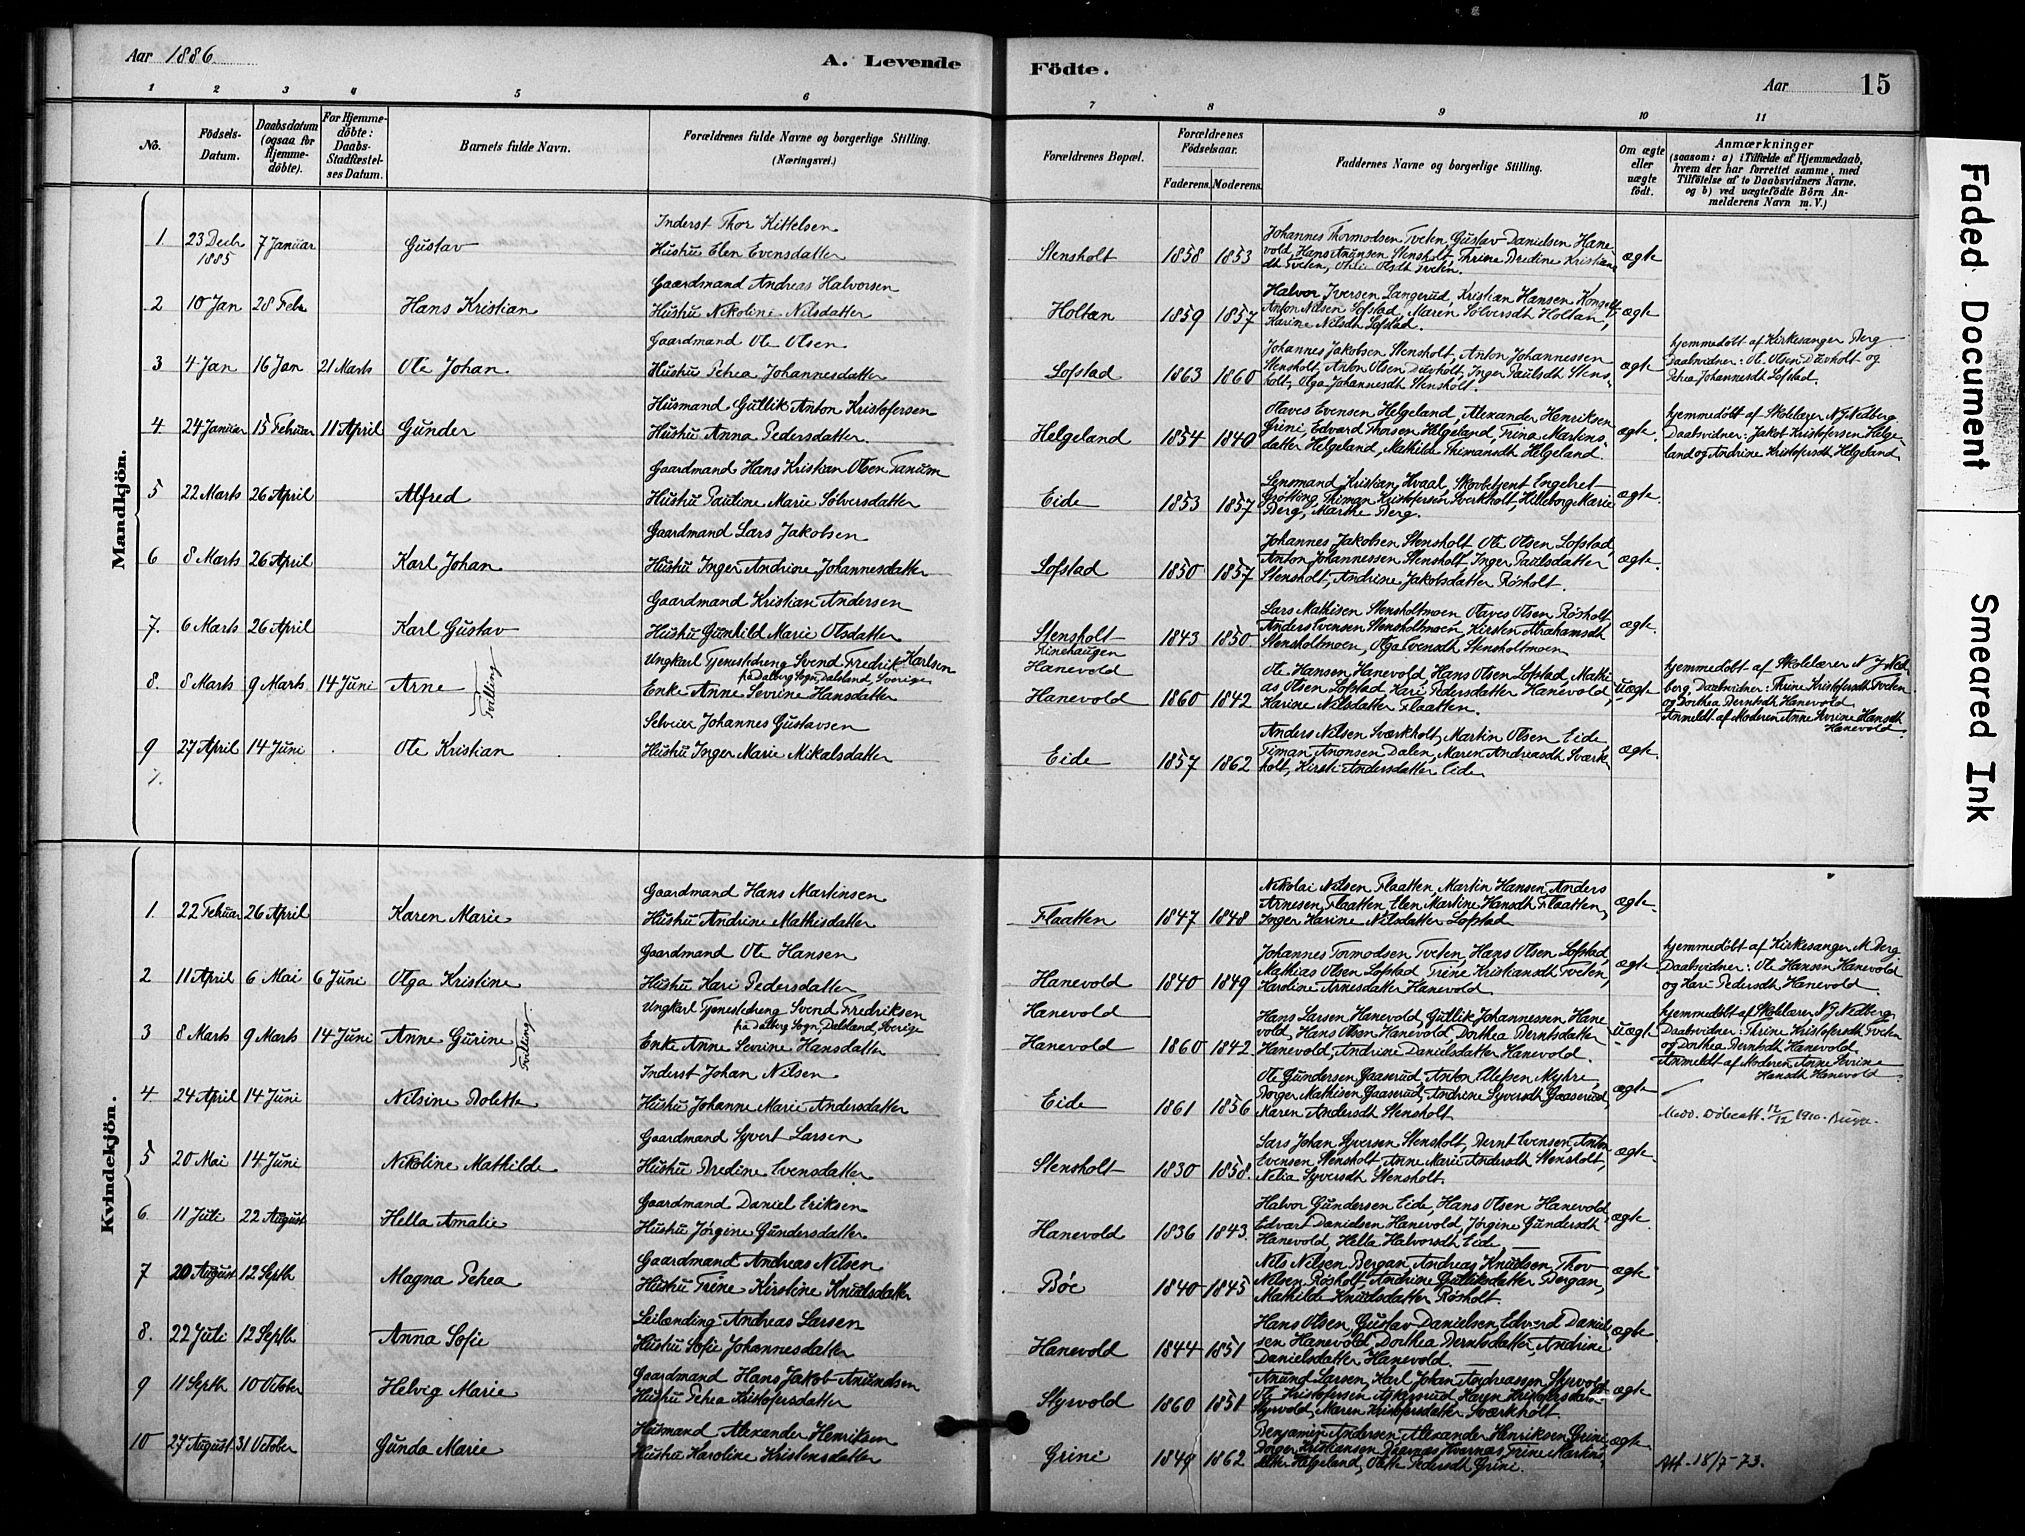 Aar 1886
A. Levende
Födte.
Aar
15
1 2 3 4 5 6 7 8 9 10 11
No.
Födsels-
Datum.
Daabsdatum
(ogsaa for
Hjemme-
döbte).
For Hjemme-
döbte:
Daabs-
Stadfæstel-
ses Datum.
Barnets fulde Navn.
Forældrenes fulde Navne og borgerlige Stilling.
(Næringsvei.)
Forældrenes Bopæl.
Forældrenes
Födselsaar.
Faderens. Moderens.
Faddernes Navne og borgerlige Stilling.
Om ægte
eller
uægte
födt.
Anmærkninger
(saasom: a) i Tilfælde af Hjemmedaab,
hvem der har forrettet samme, med
Tilföielse af to Daabsvidners Navne,
og b) ved uægtefödte Börn An-
melderens Navn m. V.)
Mandkjön.
1 23 Decbr 1885 7 Januar Gustav
Inderst Thor Kittelsen
Hustru Elen Evensdatter
Stensholt 1858 1853
Johannes Thormodsen Tveten, Gustav Danielsen Hane
vold, Hans Anunsen Stensholt, Thrine Bredine Kristians
dt Tveten, Olsdt Tveten.
ægte
2 10 Jan 28 Febr Hans Kristian
Gaardmand Andreas Halvorsen
Hustru Nikoline Nilsdatter
Holtan 1859 1857
Halvor Iversen Langerud, Kristian Hansen
Anton Nilsen Lofstad, Maren Sölversdt Holtan,
Karine Nilsdt Lofstad.
ægte
3 4 Jan 16 Jan 21 Marts Ole Johan
Gaardmand Ole Olsen
Hustru Petrea Johannesdatter
Lofstad 1863 1860
Johannes Jakobsen Stensholt, Anton Johannessen
Stensholt, Anton Olsen Duvholt, Inger Paulsdt Stens-
holt, Olga Johannesdt Stensholt.
ægte
hjemmedöbt af Kirkesanger Berg
Daabsvidner: Ole Olsen Duvholt og
Petrea Johannesdt Lofstad.
4. 24 Januar 15 Februar 11 April Gunder
Husmand Gullik Anton Kristofersen
Hustru Anna Pedersdatter.
Helgeland 1854 1840
Olaves Evensen Helgeland, Alexander Henriksen
Grini, Edvard Thorsen Helgeland, Trina Martins-
datter Helgeland, Mathilde Thimansdt Helgeland.
ægte.
hjemmedöbt af Skolelærer N J Nedberg
Daabsvidner: Jakob Kristofersen Helge-
land og Andrine Kristofersdt Helgeland
5 22 Marts 26 April Alfred
Gaardmand Hans Kristian Olsen Tanum
Hustru Pauline Marie Sölversdatter
Eide 1853 1857
Lensmand Kristian Hvaal, Skovbetjent Engebret
Grötting, Thiman Kristofersen Sværkholt, Hilleborg Marie
Berg, Marthe Berg.
ægte.
6 8 Marts 26 April Karl Johan
Gaardmand Lars Jakobsen
Hustru Inger Andrine Johannesdatter
Lofstad 1850 1857
Johannes Jakobsen Stensholt, Ole Olsen Lofstad,
Anton Johannessen Stensholt, Inger Paulsdatter
Stensholt, Andrine Jakobsdatter Rösholt.
ægte.
7. 6 Marts 26 April Karl Gustav
Gaardmand Kristian Andersen
Hustru Gunhild Marie Olsdatter
Stensholt 1843 1850
Lars Mathisen Stensholtmoen, Olaves Olsen Rösholt
Anders Evensen Stensholtmoen, Kirsten Abrahamsdt
Stensholtmoen, Olga Evensdt Stensholtmoen
ægte.
8. 8 Marts 9 Marts 14 Juni Arne Tvilling
Ungkarl Tjenestedreng Svend Fredrik Karlsen
fra Dalberg Sogn, Dalsland, Sverige
Enke Anne Sevrine Hansdatter
Hanevold
Hanevold 1860 1842
Ole Hansen Hanevold, Hans Olsen Lofstad, Mathi-
as Olsen Lofstad, Kari Pedersdatter Hanevold,
Karine Nilsdatter Flaatten.
uægte
hjemmedöbt af Skolelærer N J Ned-
berg, Daabsvidner: Thrine Kristofersdt Tveten
og Dorthea Berntsdt Hanevold
Anmeldt af Moderen Anne Sevrine Hansdt
Hanevold
9 27 April 14 Juni Ole Kristian
Selveier Johannes Gustavsen
Hustru Inger Marie Mikalsdatter
Eide 1857 1862
Anders Nilsen Sværkholt, Martin Olsen Eide
Timan Anonsen Dalen, Maren Andreasdt Sværk-
holt, Kirsti Andersdatter Eide
ægte.
Kvindekjön.
1. 22 Februar 26 April Karen Marie
Gaardmand Hans Martinsen
Hustru Andrine Mathisdatter
Flaatten 1847 1848
Nikolai Nilsen Flaatten, Martin Hansen, Anders
Arnesen Flaatten, Elen Martine Hansdt Flaatten,
Inger Karine Nilsdatter Lofstad
ægte.
2 11 April 6 Mai 6 Juni Olga Kristine
Gaardmand Ole Hansen
Hustru Kari Pedersdatter
Hanevold 1840 1849
Johannes Tormodsen Tveten, Hans Olsen Lofstad,
Mathias Olsen Lofstad, Trine Kristiansdt Tveten,
Karoline Arnesdatter Hanevold.
ægte
hjemmedöbt af Kirkesanger M. Berg.
Daabsvidner: Ole Hansen Hanevold
og Kari Pedersdt Hanevold.
3 8 Marts 9 Marts 14 Juni Anne Gurine Tvilling
Ungkarl Tjenestedreng Svend Fredriksen
fra Dalberg Sogn, Dalsland, Sverige
Enke Anne Sevrine Hansdatter
Hanevold
Hanevold 1860 1842
Hans Larsen Hanevold, Gullik Johannessen Hane
vold, Hans Olsen Hanevold, Dorthea Berntsdatter
Hanevold, Andrine Danielsdatter Hanevold.
uægte
hjemmedöbt af Skolelærer N J Nedberg
Daabsvidner: Thrine Kristofersdt Tveten
og Dorthea Berntsdt Hanevold.
Anmeldt af Moderen Anne Sevrine
Hansdt Hanevold
4 24 April 14 Juni Nilsine Bolette
Inderst Johan Nilsen
Hustru Johanne Marie Andersdatter
Eide 1861 1856
Ole Gundersen Gaaserud, Anton Ellefsen Myhre,
Börger Mathisen Gaaserud, Andrine Syversdt Gaaserud,
Karen Andersdt Stensholt.
ægte
5 20 Mai 14 Juni Nikoline Mathilde
Gaardmand Syvert Larsen
Hustru Bredine Evensdatter
Stensholt 1830 1858.
Lars Johan Syversen Stensholt, Bernt Evensen, Anton
Evensen Stensholt, Anne Marie Andersdt Stensholt,
Nelia Syversdt Stensholt.
ægte.
6. 11 Juli 22 August Hella Amalie
Gaardmand Daniel Eriksen
Hustru Jörgine Gundersdatter
Hanevold 1836 1843.
Halvor Gundersen Eide, Hans Olsen Hanevold
Edvart Danielsen Hanevold, Jörgine Gundersdt
Hanevold, Hella Halvorsdt Eide
ægte.
7 20 August 12 Septb Magna Petrea
Gaardmand Andreas Nilsen
Hustru Trine Kirstine Knudsdatter
Böe 1840 1845
Nils Nilsen Bergan, Andreas Knudsen, Thov
Nilsen Rösholt, Andrine Gulliksdatter Bergan,
Mathilde Knudsdatter Rösholt.
ægte.
8. 22 Juli 12 Septb Anna Sofie
Leilænding Andreas Larsen
Hustru Sofie Johannesdatter
Hanevold 1844 1851
Hans Olsen, Gustav Danielsen, Edvard Daniel-
sen Hanevold, Dorthea Berntsdatter, Andrine
Danielsdatter Hanevold.
ægte
9 11 Septb 10 October Helvig Marie
Gaardmand Hans Jakob Anundsen
Hustru Petrea Kristofersdatter
Styrvold 1860 1851
Anund Larsen, Karl Johan Andreassen Styrvold
Ole Kristofersen Askjerud, Karen Kristofersdatter
Styrvold, Maren Kristofersdatter Sværkholt.
ægte
10 27 August 31 October Gunda Marie
Husmand Alexander Henriksen
Hustru Karoline Kristensdatter
Grini 1849 1862
Benjamin Andersen, Alexander Henriksen Grini
Börger Kristiansen, Trine Martins-
datter Helgeland, Pedersdt Grini.
ægte.
Att. 18/7-73.
Faded Document
Smeared Ink